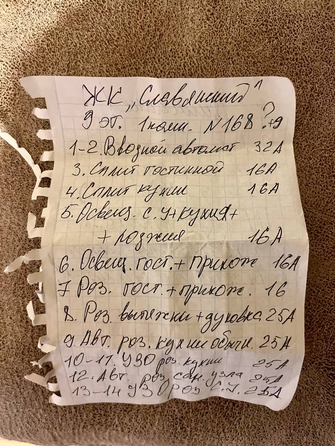 ЖК „Славянский"
9 эт. 1 комн. N 168 ? +9
1-2. Вводной автомат 32А
3. Сплит гостинной 16А
4. Сплит кухни 16А
5. Освещ. с.у+кухня+
+ лоджия 16А
6. Освещ. гост.+ прихож 16А
7 Роз. гост.+прихож. 16
8. Роз вытяжки+духовка 25А
9 Авт. роз. кухни общ. 25А
10-11. УЗО роз. кухни 25А
12. Авт. роз. сан. узла 25А
13-14 УЗО роз с.у. 25А